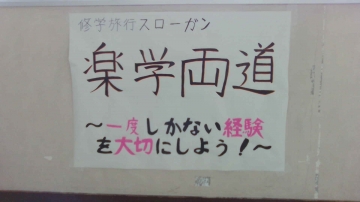 修学旅行スローガン
楽学両道
～一度しかない経験
を大切にしよう！～